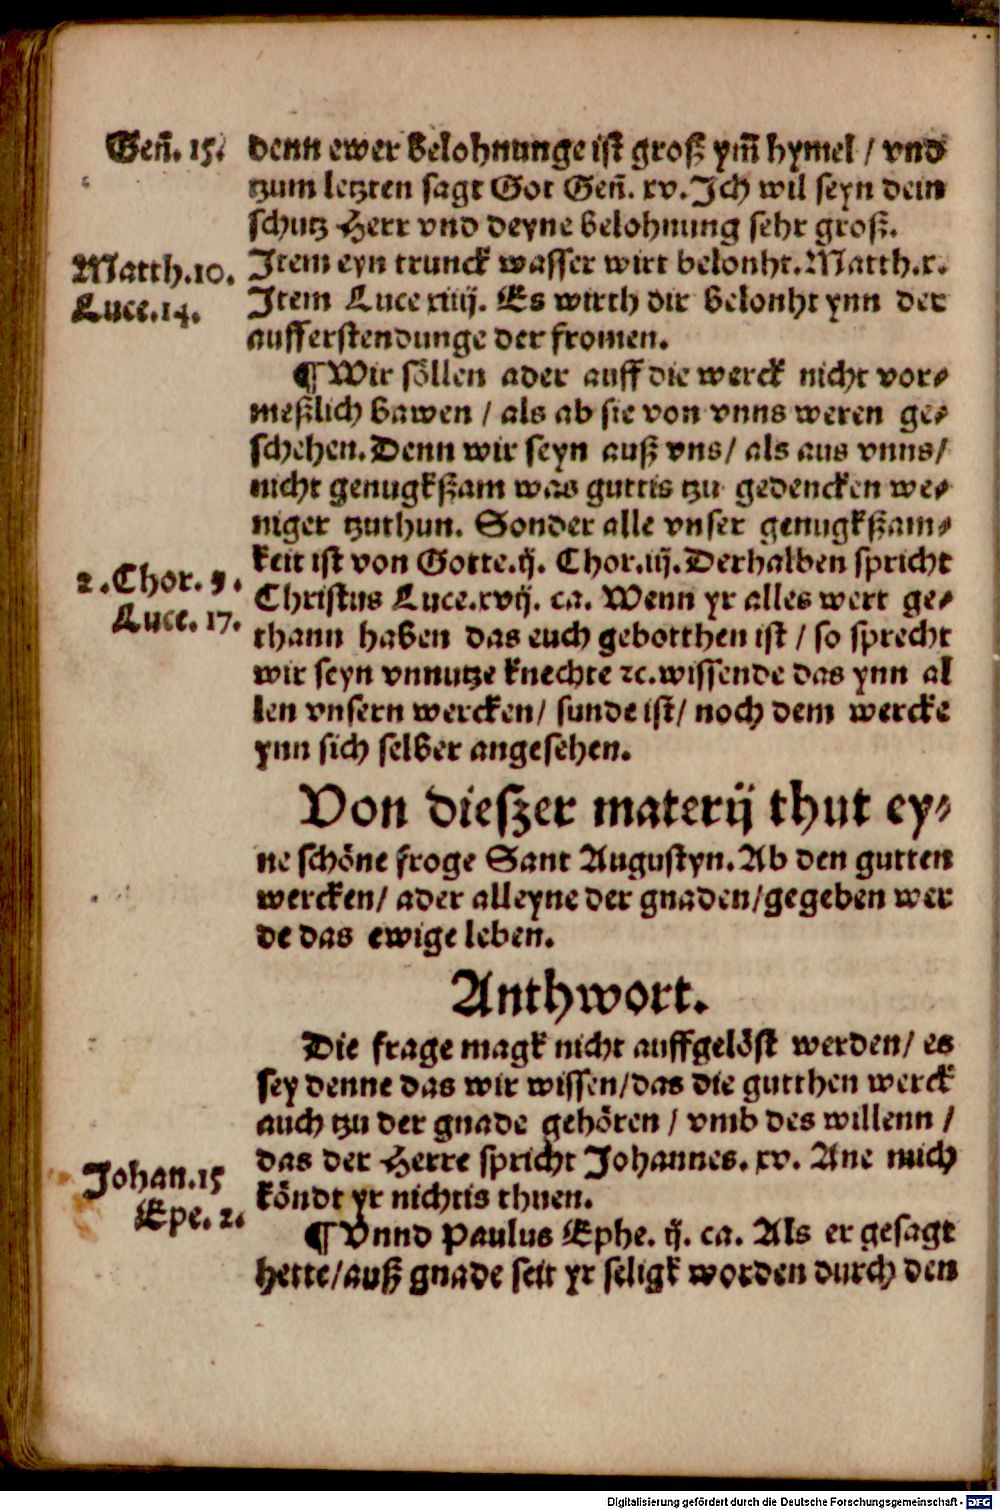 Gen̄. 15. denn ewer belohnunge ist groß ym̄ hymel / vnd
tzum letzten sagt Got Gen̄. xv. Jch wil seyn dein
schutz Herr vnd deyne belohnung sehr groß.
Matth.10. Jtem eyn trunck wasser wirt belonht. Matth.x.
Luce.14. Jtem Luce xiiij. Es wirth dir belonht ynn der
aufferstendunge der fromen.
¶ Wir söllen ader auff die werck nicht vor⸗
meßlich bawen / als ab sie von vnns weren ge⸗
schehen. Denn wir seyn auß vns / als aus vnns /
nicht genugkßam was guttis tzu gedencken we⸗
niger tzuthun. Sonder alle vnser genugkßam⸗
2.Chor. 9. keit ist von Gotte. ij. Chor. iij. Derhalben spricht
Luce. 17. Christus Luce.xvij. ca. Wenn yr alles wert ge⸗
thann haben das euch gebotthen ist / so sprecht
wir seyn vnnutze knechte ⁊c. wissende das ynn al
len vnsern wercken / sunde ist / noch dem wercke
ynn sich selber angesehen.
Von dieszer materij thut ey⸗
ne schöne froge Sant Augustyn. Ab den gutten
wercken / ader alleyne der gnaden / gegeben wer
de das ewige leben.
Anthwort.
Die frage magk nicht auffgelöst werden / es
sey denne das wir wissen / das die gutthen werck
auch tzu der gnade gehören / vmb des willenn /
Johan.15 das der Herre spricht Johannes. xv. Ane mich
Epe. 2. köndt yr nichtis thuen.
¶ Vnnd Paulus Ephe. ij. ca. Als er gesagt
hette / auß gnade seit yr seligk worden durch den
Digitalisierung gefördert durch die Deutsche Forschungsgemeinschaft - DFG